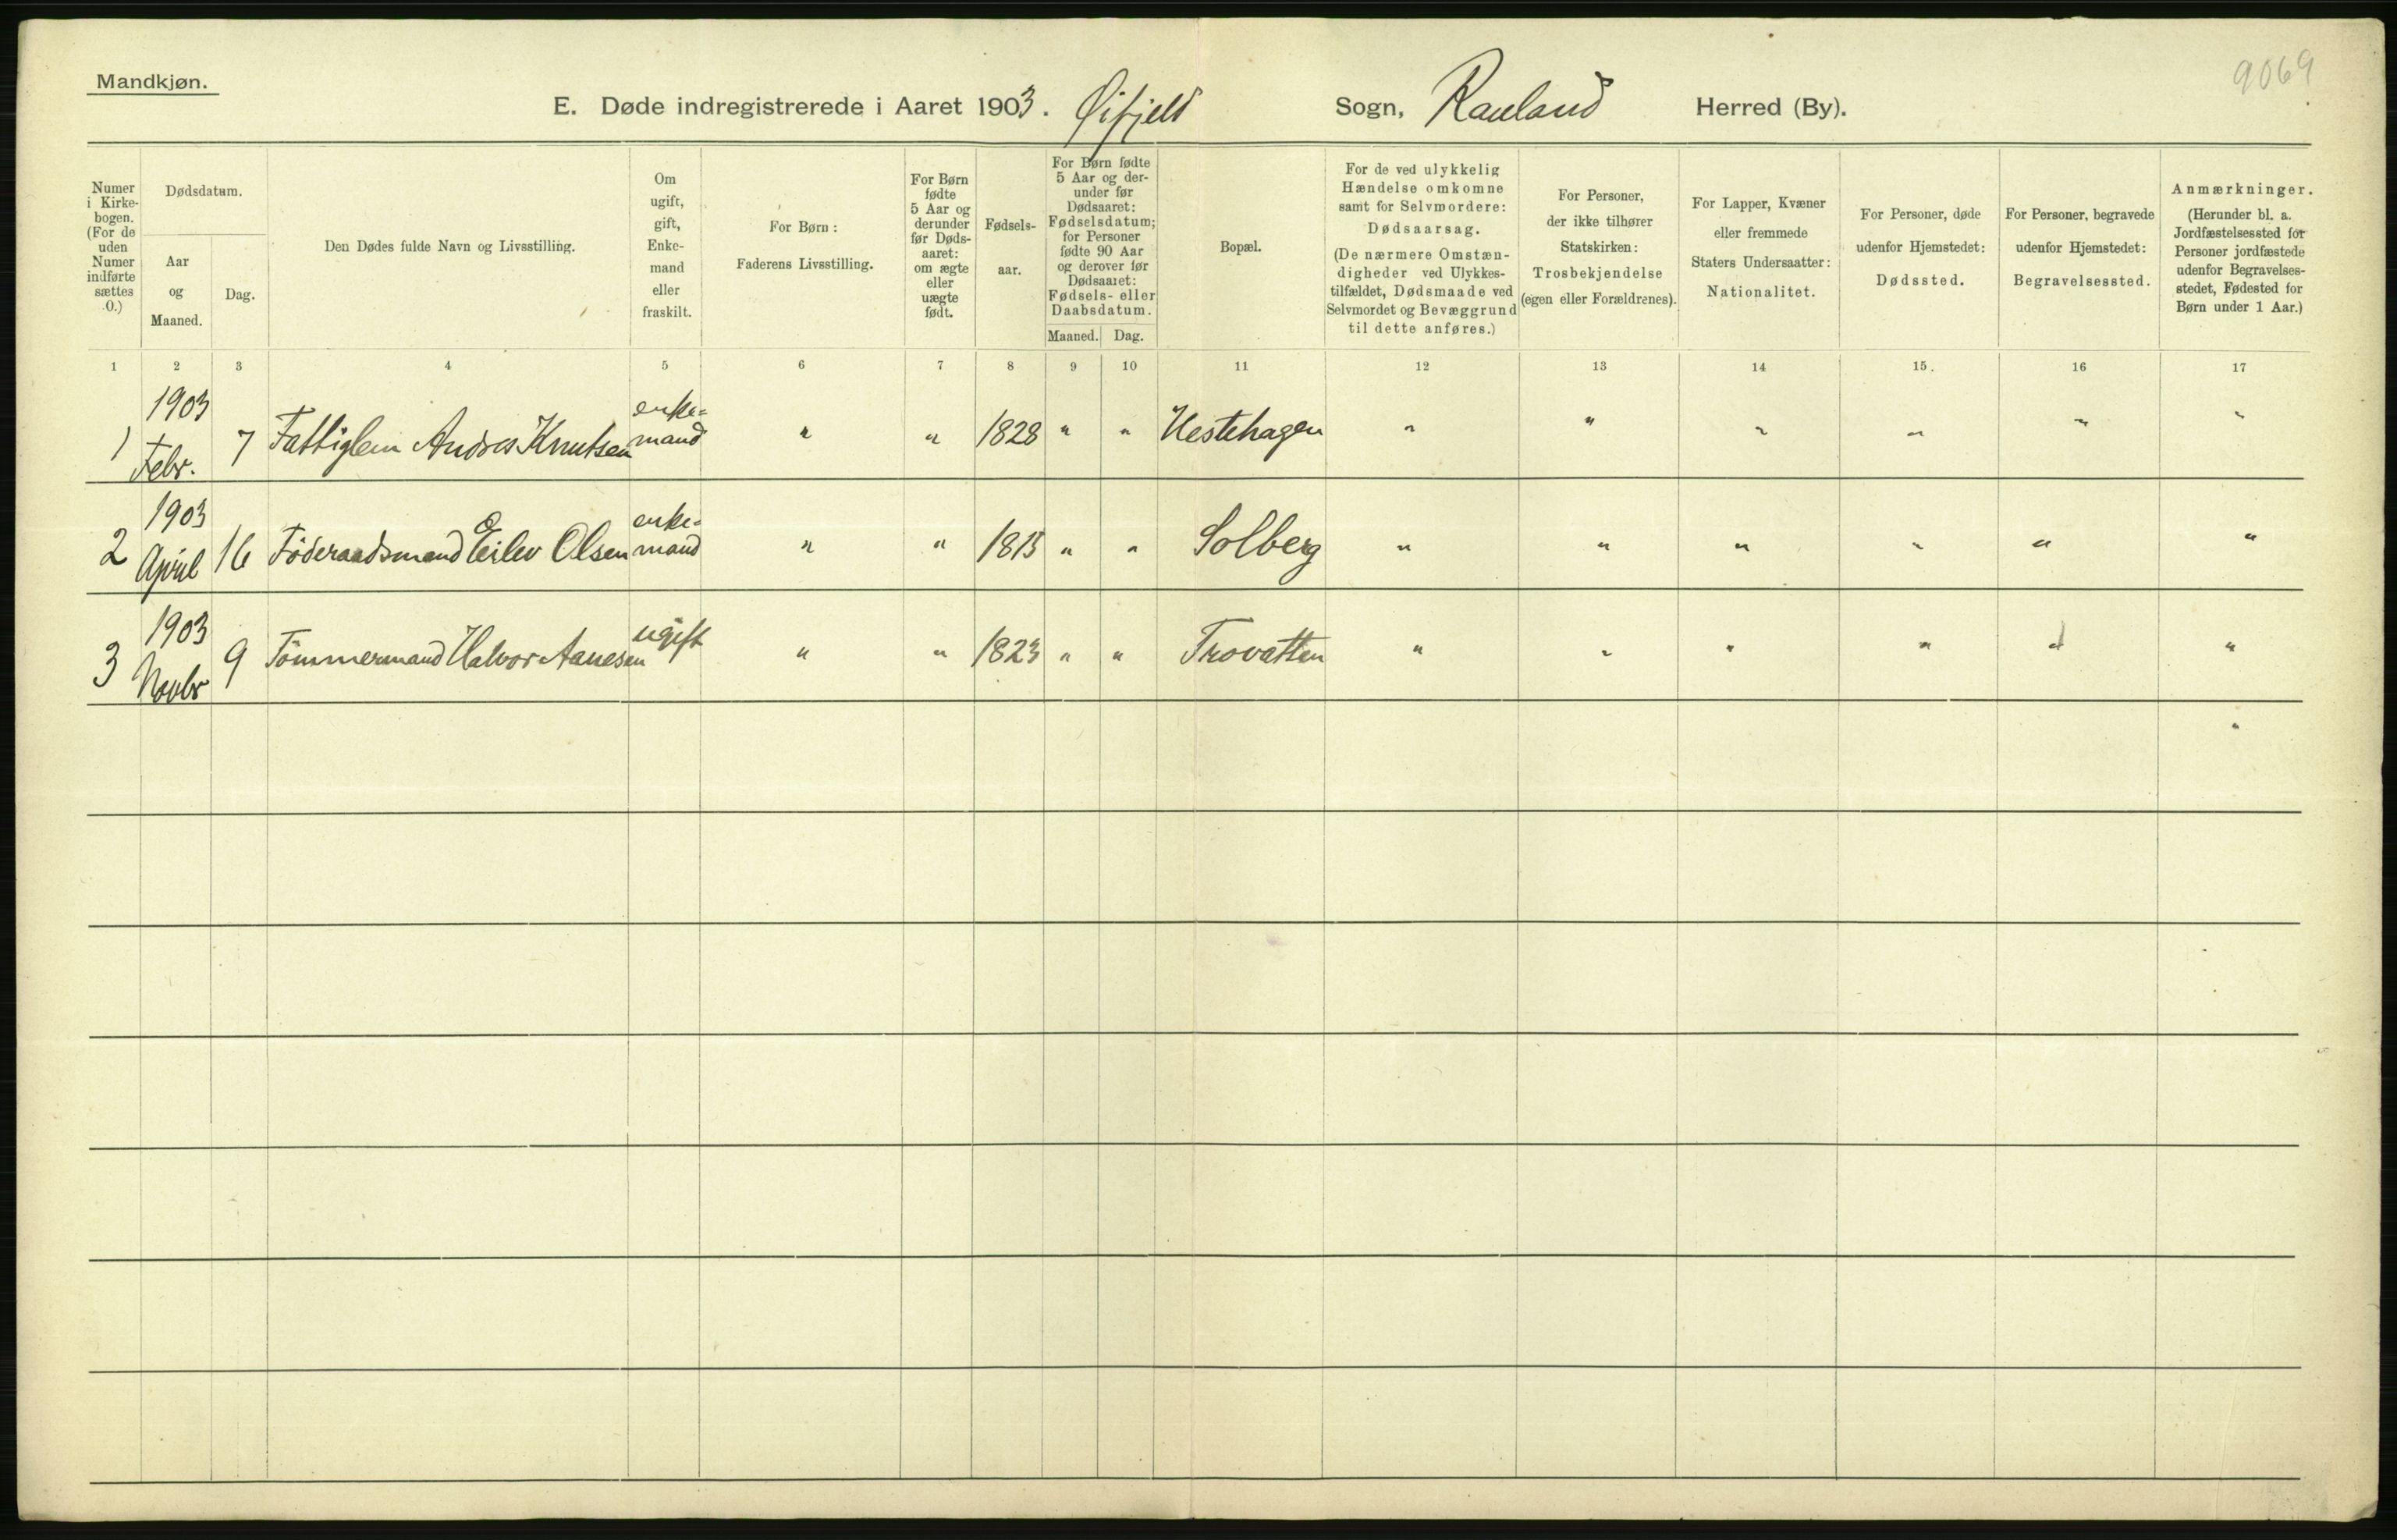 Mandkjøn.
9069
E. Døde indregistrerede i Aaret 1903. Øifjeld Sogn, Rauland Herred (By).
Numer i Kirke-bogen. (For de uden Numer indførte sættes 0.)
Dødsdatum.
Aar og Maaned.
Dag.
Den Dødes fulde Navn og Livsstilling.
Om ugift, gift, Enke-mand eller fraskilt.
For Børn: Faderens Livsstilling.
For Børn fødte 5 Aar og derunder før Døds-aaret: om ægte eller uægte født.
Fødsels-aar.
For Børn fødte 5 Aar og der-under før Dødsaaret: Fødselsdatum; for Personer fødte 90 Aar og derover før Dødsaaret: Fødsels- eller Daabsdatum.
Maaned. Dag.
Bopæl.
For de ved ulykkelig Hændelse omkomne samt for Selvmordere: Dødsaarsag. (De nærmere Omstæn-digheder ved Ulykkes-tilfældet, Dødsmaade ved Selvmordet og Bevæggrund til dette anføres.)
For Personer, der ikke tilhører Statskirken: Trosbekjendelse (egen eller Forældrenes).
For Lapper, Kvæner eller fremmede Staters Undersaatter: Nationalitet.
For Personer, døde udenfor Hjemstedet: Dødssted.
For Personer, begravede udenfor Hjemstedet: Begravelsessted.
Anmærkninger. (Herunder bl. a. Jordfæstelsessted for Personer jordfæstede udenfor Begravelses-stedet, Fødested for Børn under 1 Aar.)
1 2 3 4 5 6 7 8 9 10 11 12 13 14 15. 16 17
1 1903 Febr. 7 Fattiglem Andres Knutsen enke-mand " " 1828 " " Hestehagen " " " " " "
2 1903 April 16 Föderaadsmand Eilev Olsen enke-mand " " 1815 " " Solberg " " " " " "
3 1903 Novbr 9 Tömmermand Halvor Aanesen ugift " " 1823 " " Trovatten " " " " " "
"